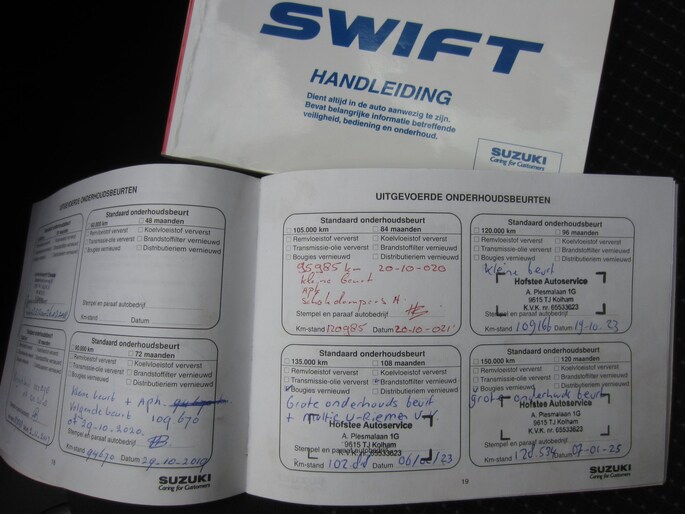 SWIFT
HANDLEIDING
Dient altijd in de auto aanwezig te zijn.
Bevat belangrijke informatie betreffende
veiligheid, bediening en onderhoud.
SUZUKI
Caring for Customers
UITGEVOERDE ONDERHOUDSBEURTEN
Standaard onderhoudsbeurt
48 maanden
Remvloeistof ververst Koelvloeistof ververst
Transmissie-olie ververst Brandstoffilter vernieuwd
Bougies vernieuwd Distributieriem vernieuwd
Stempel en paraaf autobedrijf
Km-stand Datum
Standaard onderhoudsbeurt
90.000 km 72 maanden
Remvloeistof ververst Koelvloeistof ververst
Transmissie-olie ververst Brandstoffilter vernieuwd
Bougies vernieuwd Distributieriem vernieuwd
Kleine beurt + Apk.
Volgende beurt 109670
29-10-2020.
Stempel en paraaf autobedrijf
Km-stand 94670 Datum 29-10-2019
18
SUZUKI
Caring for Customers
UITGEVOERDE ONDERHOUDSBEURTEN
Standaard onderhoudsbeurt
105.000 km 84 maanden
Remvloeistof ververst Koelvloeistof ververst
Transmissie-olie ververst Brandstoffilter vernieuwd
Bougies vernieuwd Distributieriem vernieuwd
95985 20-10-020
kleine beurt
APK
Stempel en paraaf autobedrijf
Km-stand Datum 20-10-021
Standaard onderhoudsbeurt
120.000 km 96 maanden
Remvloeistof ververst Koelvloeistof ververst
Transmissie-olie ververst Brandstoffilter vernieuwd
Bougies vernieuwd Distributieriem vernieuwd
kleine beurt
Hofstee Autoservice
A. Plesmalaan 1G
9615 TJ Kolham
K.V.K. nr. 65533623
Stempel en paraaf autobedrijf
Km-stand 109166 Datum 19-10-23
Standaard onderhoudsbeurt
135.000 km 108 maanden
Remvloeistof ververst Koelvloeistof ververst
Transmissie-olie ververst Brandstoffilter vernieuwd
Bougies vernieuwd Distributieriem vernieuwd
Grote onderhouds beurt
+ multie V-Riemen
Hofstee Autoservice
A. Plesmalaan 1G
9615 TJ Kolham
K.V.K. nr. 65533623
Stempel en paraaf autobedrijf
Km-stand Datum
Standaard onderhoudsbeurt
150.000 km 120 maanden
Remvloeistof ververst Koelvloeistof ververst
Transmissie-olie ververst Brandstoffilter vernieuwd
Bougies vernieuwd Distributieriem vernieuwd
grote onderhouds beurt
Hofstee Autoservice
A. Plesmalaan 1G
9615 TJ Kolham
K.V.K. nr. 65533623
Stempel en paraaf autobedrijf
Km-stand 120.534 Datum 07-01-25
19
SUZUKI
Caring for Customers